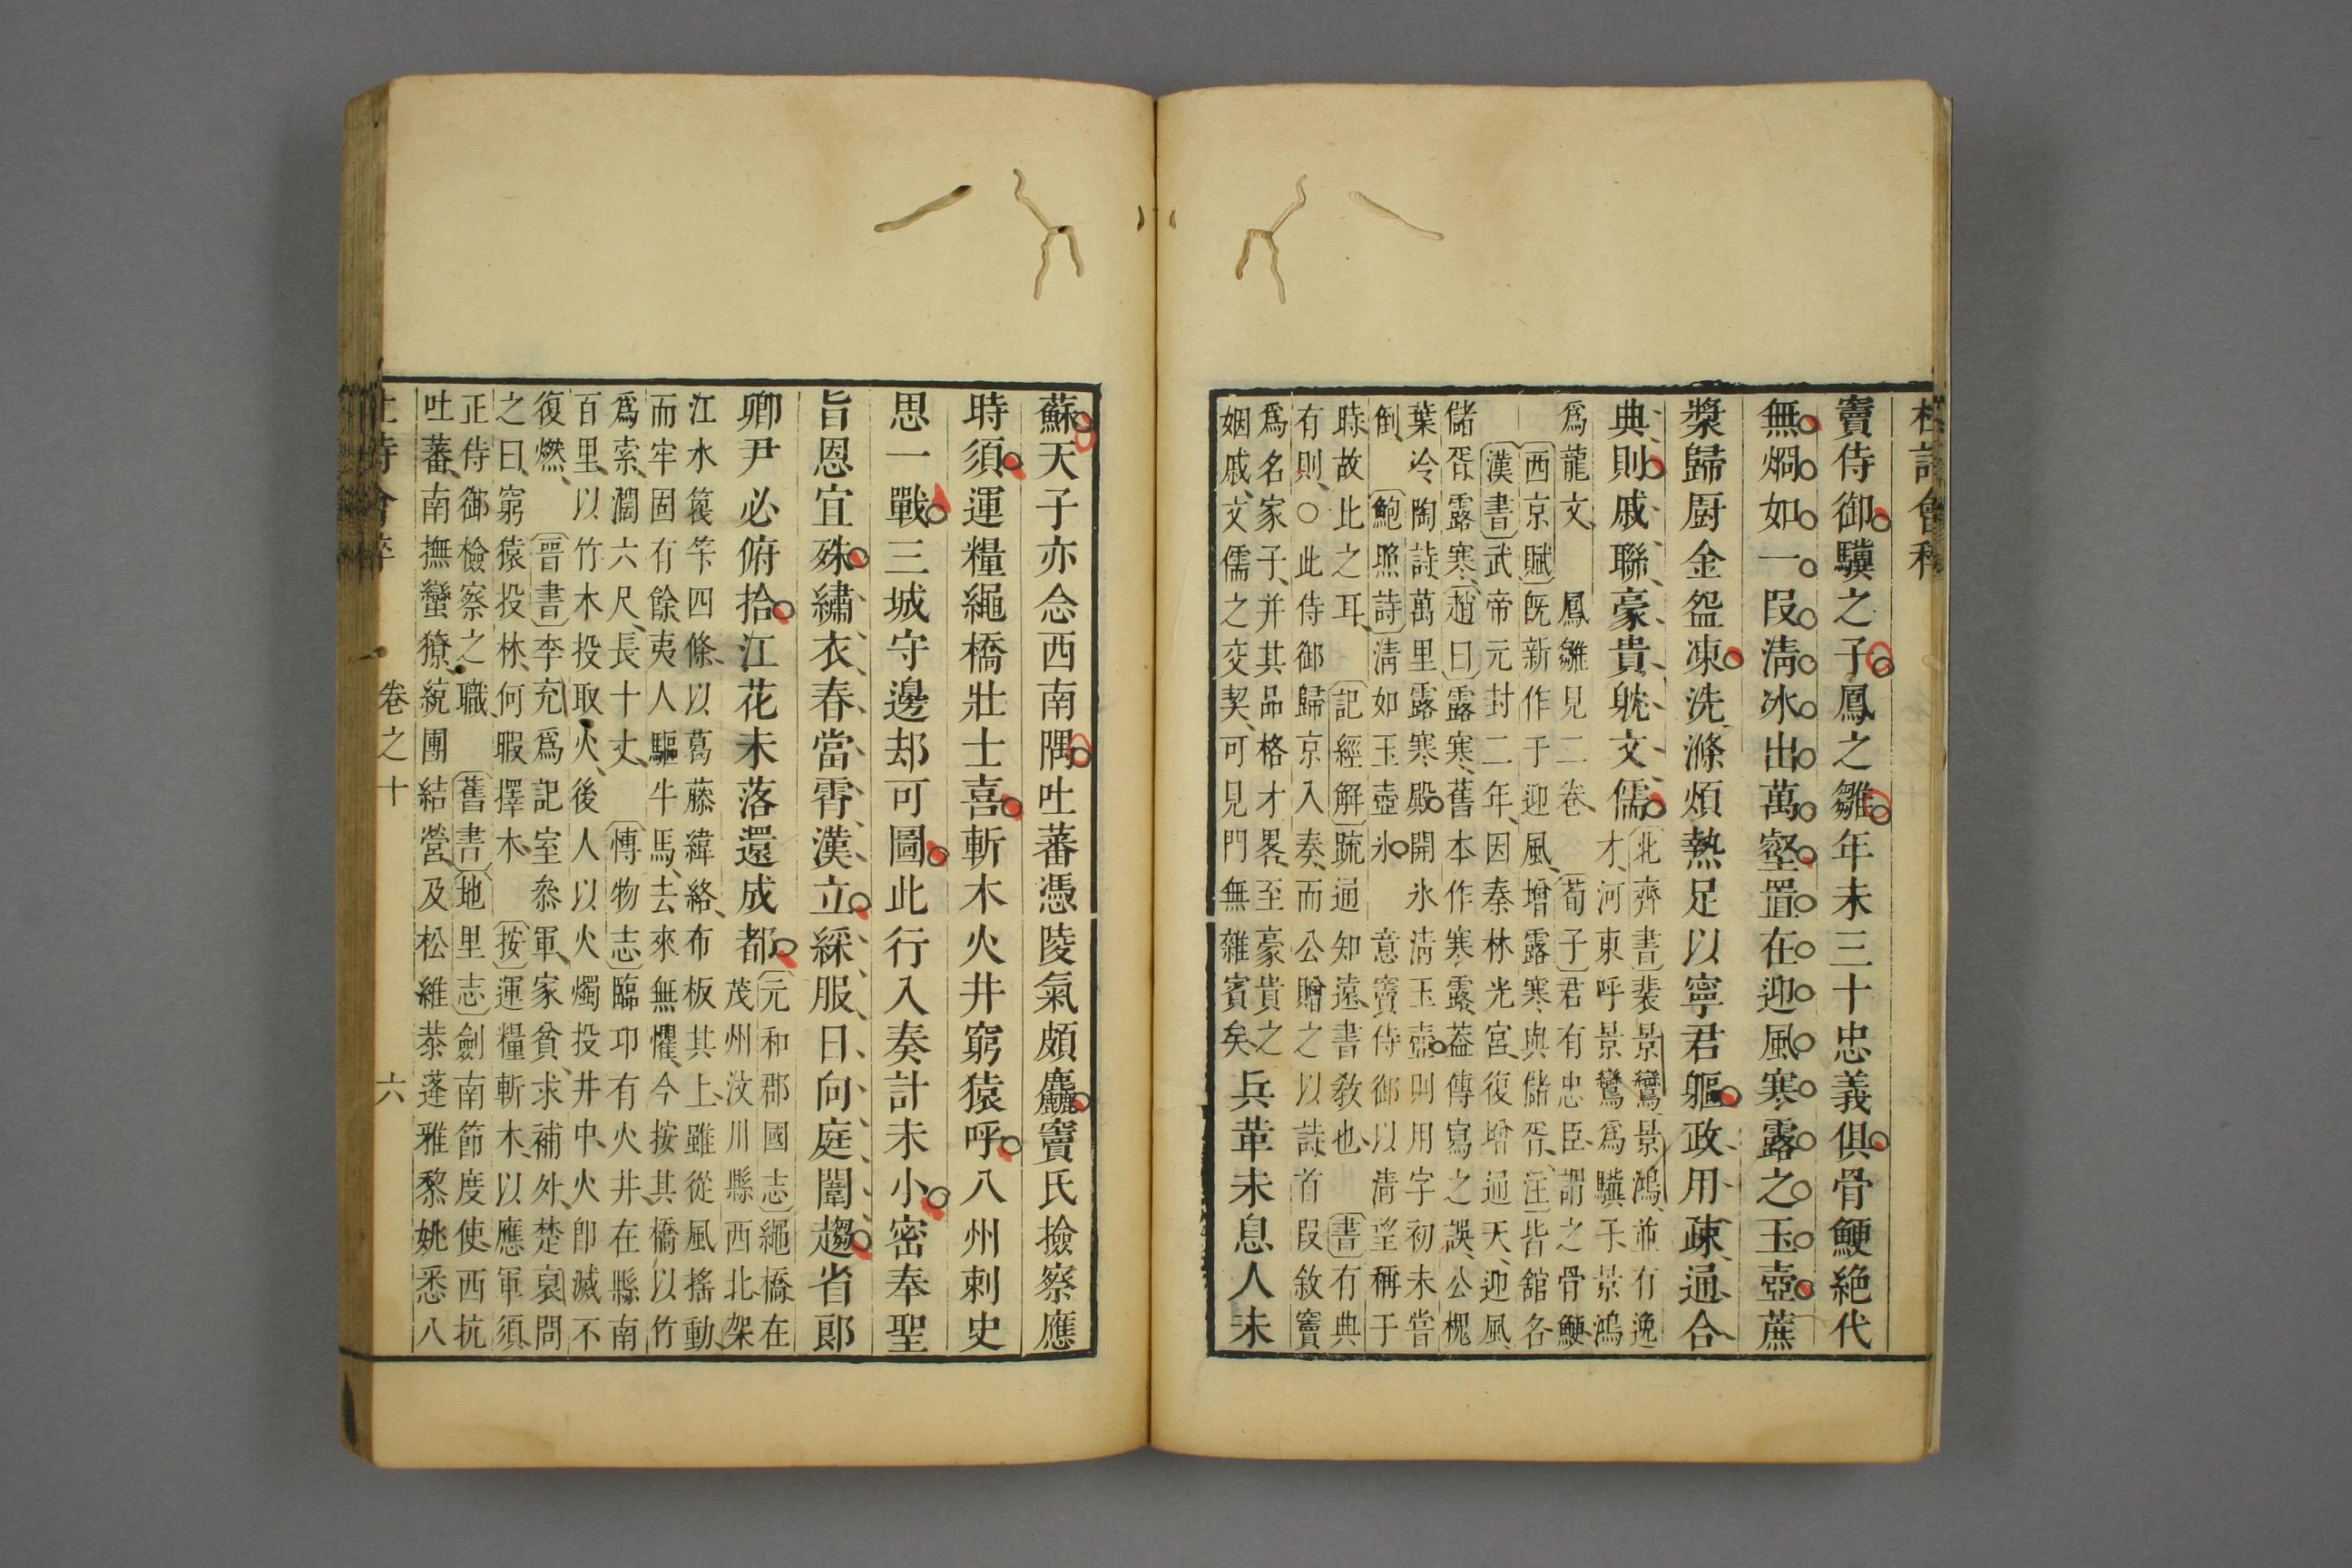 杜詩會稡
竇侍御驥之子鳳之雛年未三十忠義俱骨鯁絕代
無烱如一段淸冰出萬壑置在迎風寒露之玉壺蔗
漿歸厨金盌凍洗滌煩熱足以寧君軀政用疎通合
典則戚聯豪貴躭文儒
北齊書裴景鸞景鴻並有逸
才河東呼景鸞爲驥子景鴻
爲龍文鳳雛見二卷荀子君有忠臣謂之骨鯁
西京賦旣新作于迎風增露寒與儲胥注皆舘名
漢書武帝元封二年因秦林光宮復增通天迎風
儲胥露寒趙曰露寒舊本作寒露葢傳寫之誤公槐
葉冷陶詩萬里露寒殿開氷淸玉壺則用字初未嘗
倒鮑照詩淸如玉壺氷意竇侍御以淸望稱于
時故此之耳記經解疏通知遠書敎也書有典
有則○此侍御歸京入奏而公贈之以詩首段敘竇
爲名家子并其品格才畧至豪貴之
姻戚文儒之交契可見門無雜賓矣
兵革未息人未
蘇天子亦念西南隅吐蕃憑陵氣頗麤竇氏撿察應
時須運糧繩橋壯士喜斬木火井窮猿呼八州刺史
思一戰三城守邊却可圖此行入奏計未小密奉聖
旨恩宜殊繡衣春當霄漢立綵服日向庭闈趨省郎
卿尹必俯拾江花未落還成都
元和郡國志繩橋在
茂州汶川縣西北架
江水篾笮四條以葛藤緯絡布板其上雖從風搖動
而牢固有餘夷人驅牛馬去來無懼今按其橋以竹
爲索濶六尺長十丈博物志臨卭有火井在縣南
百里以竹木投取火後人以火燭投井中火卽滅不
復燃晉書李充爲記室叅軍家貧求補外楚裒問
之曰窮猿投林何暇擇木按運糧斬木以應軍須
正侍御檢察之職舊書地里志劍南節度使西抗
吐蕃南撫蠻獠統團結營及松維恭蓬雅黎姚悉八
杜詩會稡
卷之十
六